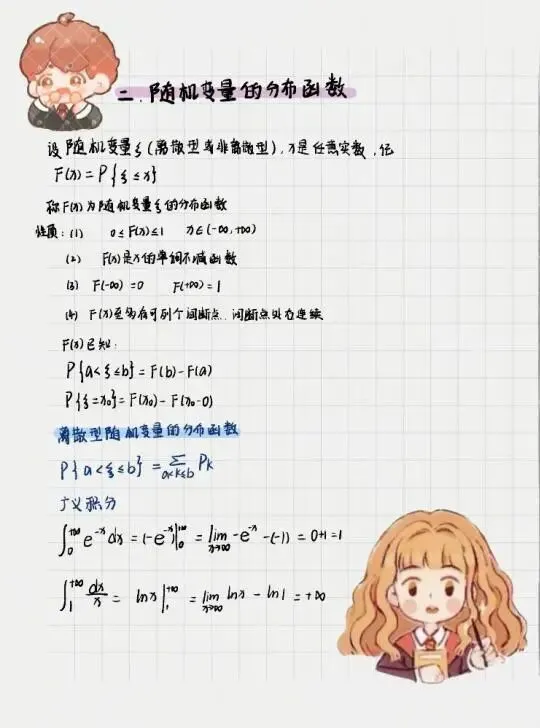 二. 随机变量的分布函数
设随机变量ξ(离散型或非离散型), x是任意实数, 记
F(x) = P{ξ ≤ x}
称F(x)为随机变量ξ的分布函数
性质: (1) 0 ≤ F(x) ≤ 1 x∈(-∞, +∞)
(2) F(x)是x的单调不减函数
(3) F(-∞) = 0 F(+∞) = 1
(4) F(x)至多有可列个间断点. 间断点处右连续
F(x)已知:
P{a<ξ≤b} = F(b) - F(a)
P{ξ=x₀} = F(x₀) - F(x₀-0)
离散型随机变量的分布函数
P{a<ξ≤b} = ∑_{a<k≤b} Pk
广义积分
∫₀^{+∞} e^{-x} dx = (-e^{-x})|₀^{+∞} = lim_{x→∞} -e^{-x} - (-1) = 0+1 = 1
∫₁^{+∞} dx/x = ln x |₁^{+∞} = lim_{x→∞} ln x - ln 1 = +∞